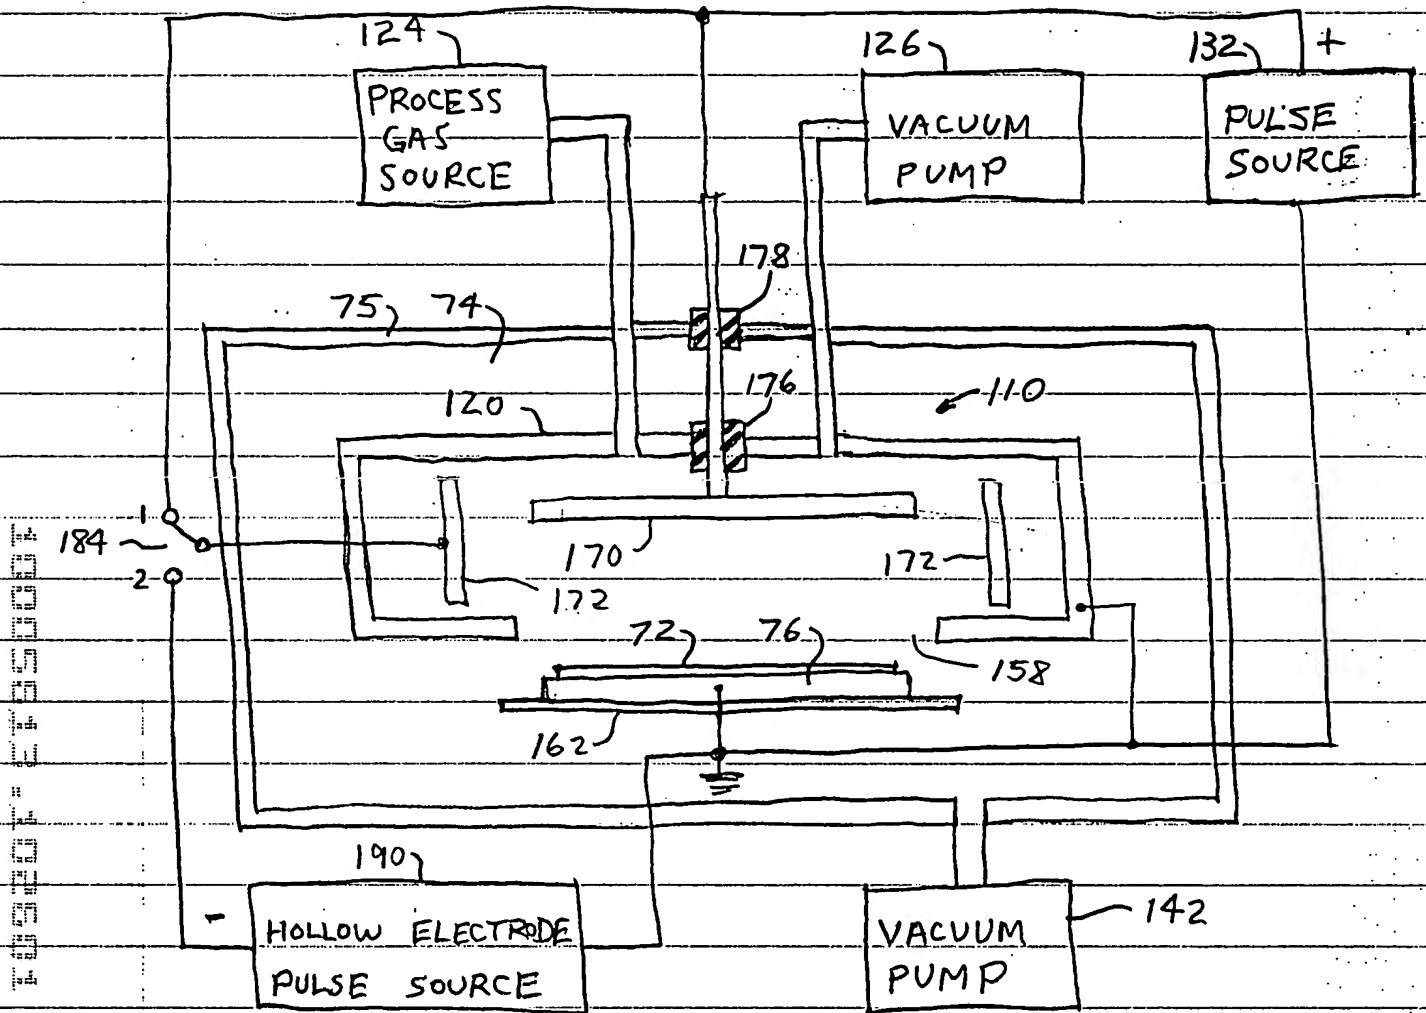 124
126
132
+
PROCESS
GAS
SOURCE
VACUUM
PUMP
PULSE
SOURCE
178
75
74
176
120
110
1
184
2
170
172
172
72
76
158
162
190
142
-
HOLLOW ELECTRODE
PULSE SOURCE
VACUUM
PUMP